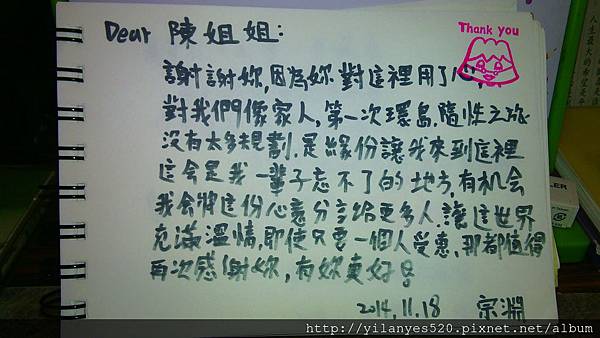 Dear 陳姐姐:
Thank you
謝謝妳,因為妳對這裡用了心,
對我們像家人,第一次環島,隨性之旅
沒有太多規劃,是緣份讓我來到這裡
這会是我一輩子忘不了的地方,有机会
我会將這份心意分享給更多人,讓這世界
充滿溫情,即使只要一個人受惠,那都值得
再次感謝妳,有妳真好
2014.11.18 宗淵
http://yilanyes520.pixnet.net/album